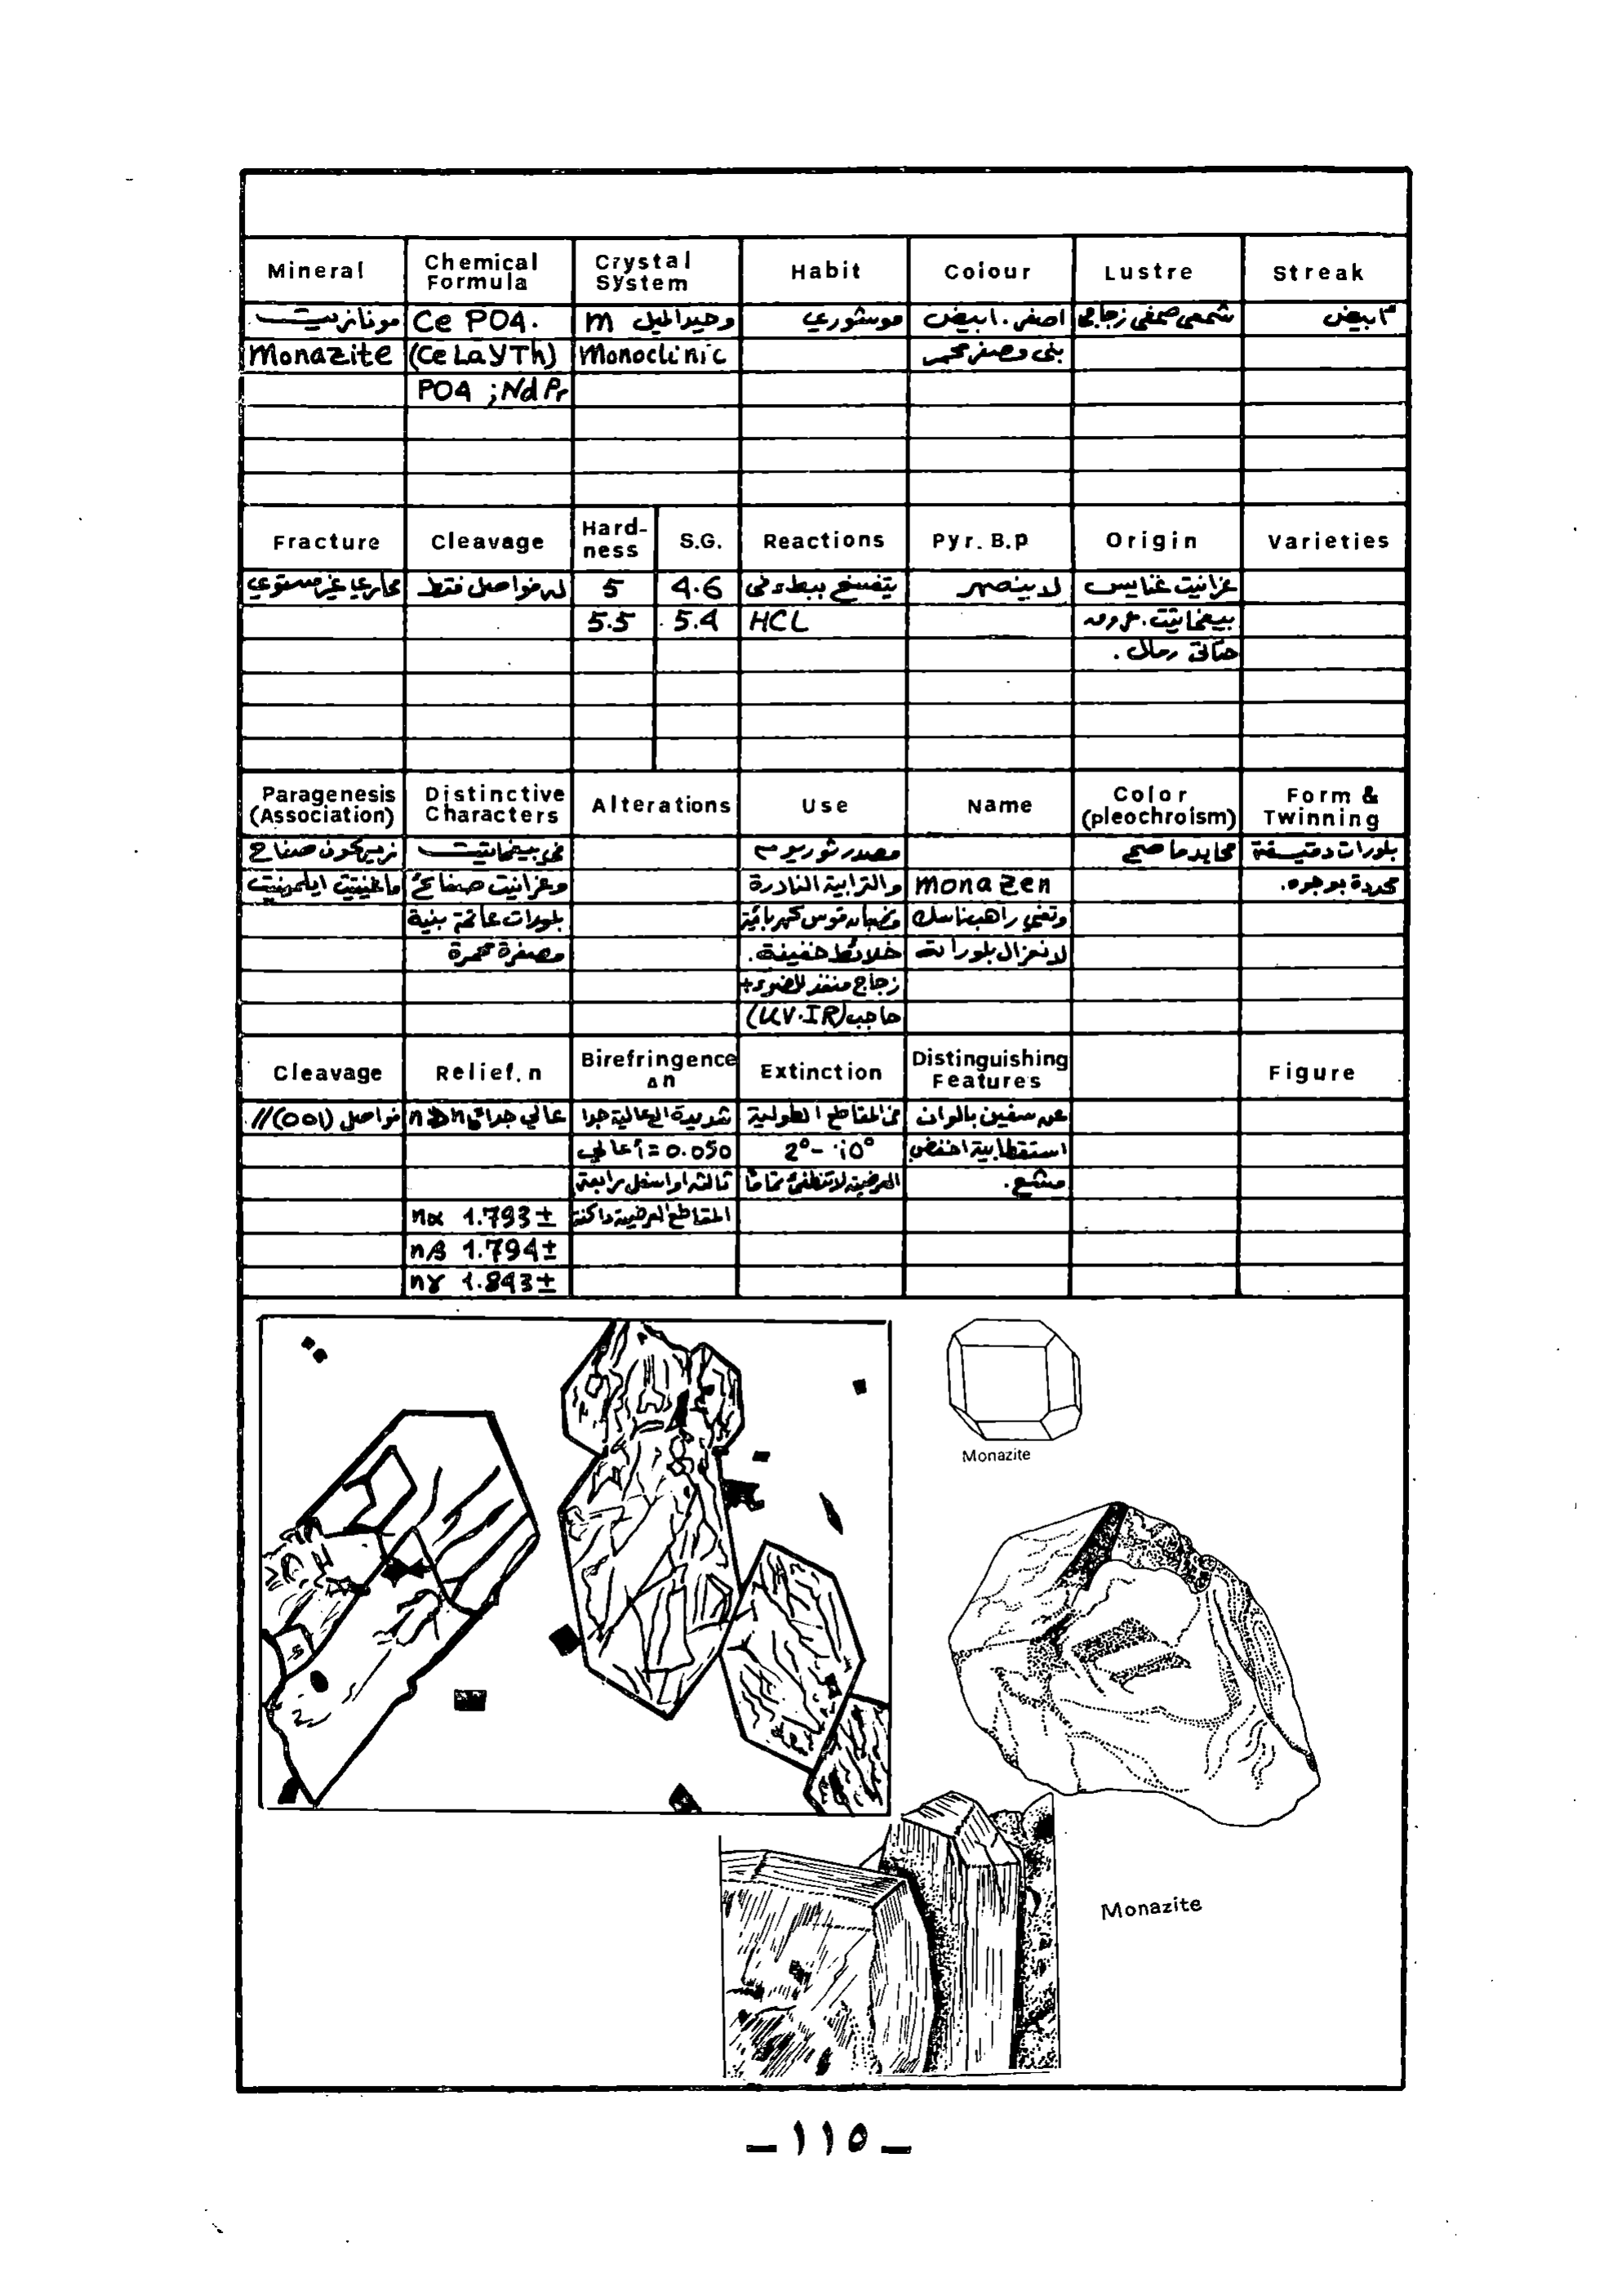 Mineral
Chemical Formula
Crystal System
Habit
Colour
Lustre
Streak
مونازيت Ce PO4. وحيد الميل m موشوري اصفر. ابيض شمعي صمغي زجاجي ابيض
Monazite (Ce La Y Th) Monoclinic بني مصفر محمر
PO4 ; Nd Pr
Fracture
Cleavage
Hard-ness
S.G.
Reactions
Pyr. B.p
Origin
Varieties
محاري غير مستوي له فواصل فقط 5 4.6 يتفسخ ببطء في لا ينصهر غرانيت غنايس
5.5 5.4 HCL بيغماتيت. عروق
رمال.
Paragenesis (Association)
Distinctive Characters
Alterations
Use
Name
Color (pleochroism)
Form & Twinning
زيركون صفاح في بيغماتيت مصدر ثوريوم محايد بلورات دقيقة
ماغنيتيت ايلمنيت وغرانيت صفائح والترابية النادرة monazen محددة بوجوه.
بلورات بنية قوس كهربائية وتعني راهب ناسك
مصفرة محمرة خلائط خفيفة. لانعزال بلوراته
زجاج منفذ للضوء +
حاجب (UV.IR)
Cleavage
Relief. n
Birefringence Δn
Extinction
Distinguishing Features
Figure
فواصل (001) // عالي جدا n شديدة العالية جدا في المقاطع الطولية عن سفين بالوان
أعالي = 0.050 2° - 10° استقطابية اخفض
ثالثة او اسفل رابعة العرضية لا تنطفئ تماما مشبع.
nα 1.793 ± المقاطع العرضية داكنة
nβ 1.794 ±
nγ 1.843 ±
Monazite
Monazite
ـ ١١٥ ـ